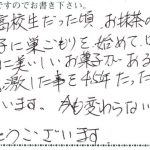 ですのでお書き下さい。
高校生だった頃、お抹茶の
子に巣ごもりを始めて、じ
に美しいお菓子がある
感激した事を46年たった
います。今も変わらない
とうございます。